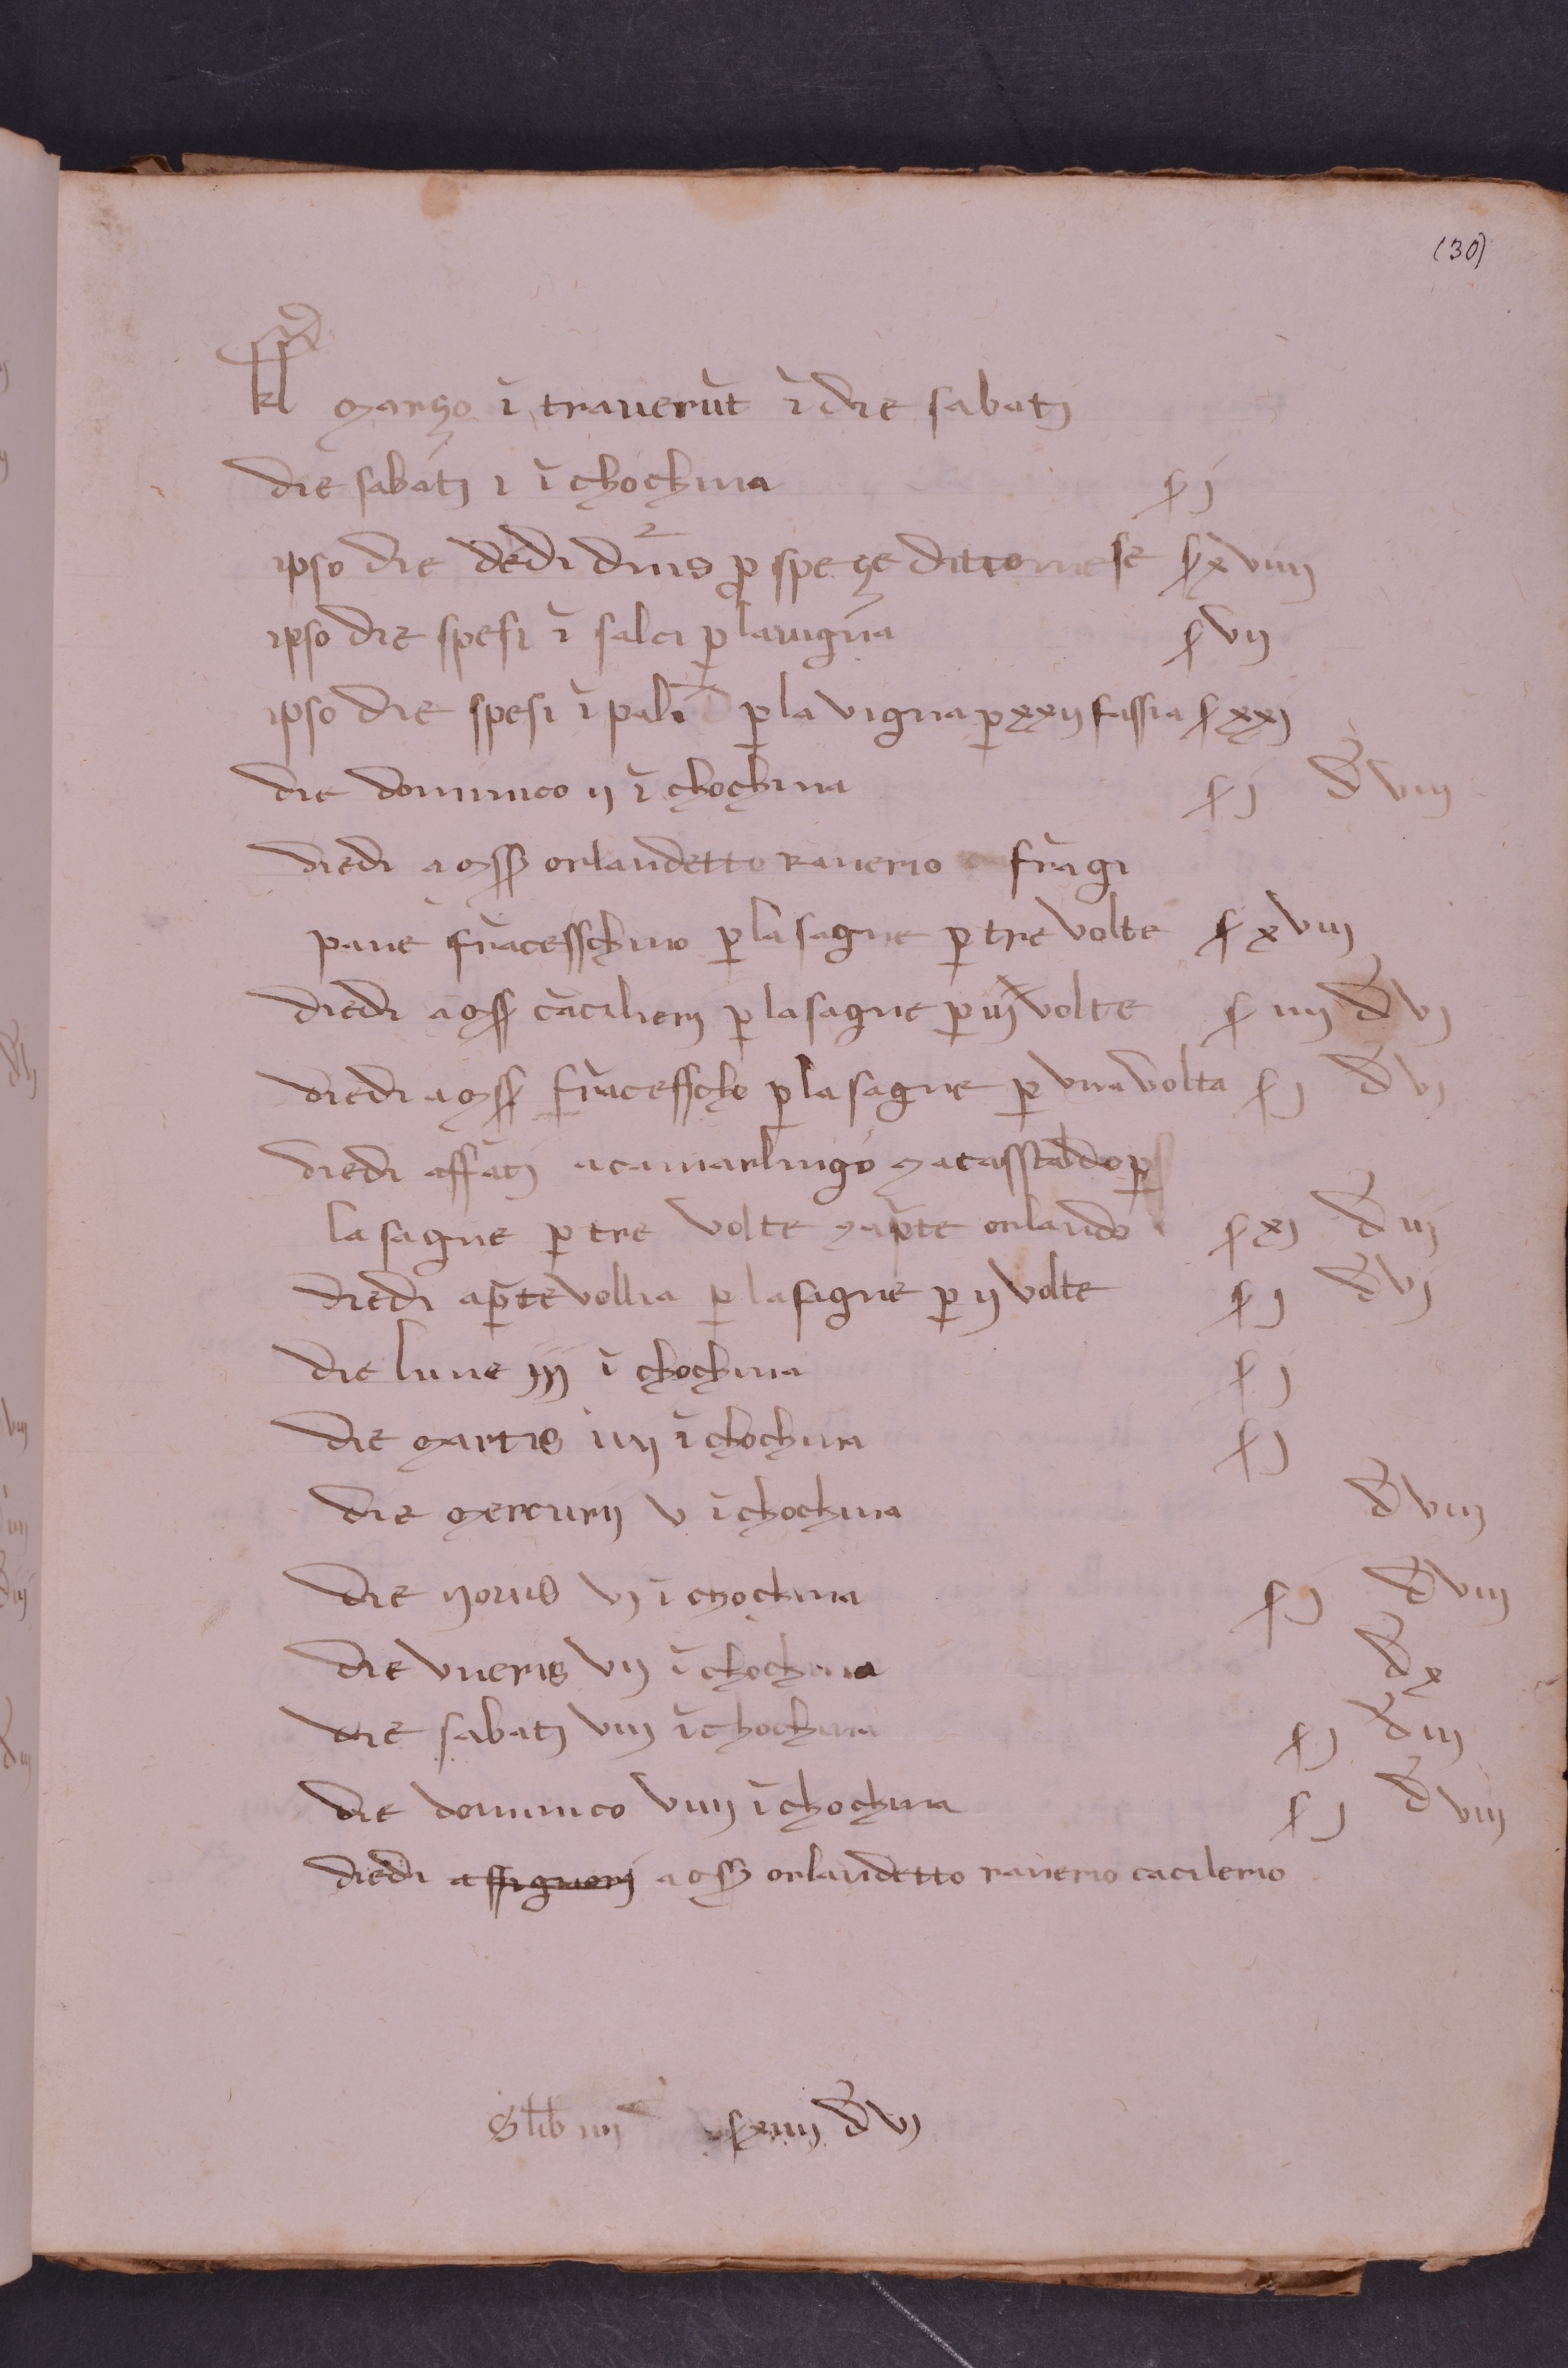 (30)
kl março ī traverūt ī die sabatj
die sabatj 1 ī chochina s j
ipso die dedi dnīs p speçe dicto mese s xviiij
ipso die spesi ī salci p la vigna s vij
ipso die spesi ī pali p la vigna p xxij fassia s xxj
die dominico ij ī chochina s j d viij
diedi a mss orlandetto ranerio frāgi
pane frācesschino p lasagne p tre volte s xviij
diedi a mss cācilierj p lasagne p iij volte s iiij d vj
diedi a mss frācesscho p lasagne p una volta s j d vj
diedi affātj a camarlingo matassaldo p
lasagne p tre volte prete orlando s xj d iij
diedi a prete vollia p lasagne p ij volte s j d vj
die lune iij ī chochina s j
die martis iiij ī chochina s j
die mercurij v ī chochina d viij
die jovis vj ī chochina s j d viij
die vneris vij ī chochina d x
die sabatj viij ī chochina s j d iij
die dominico viiij ī chochina s j d viij
diedi a ssignorj a mss orlandetto ranerio cacilerio
S lib iiij s xiiij d vj